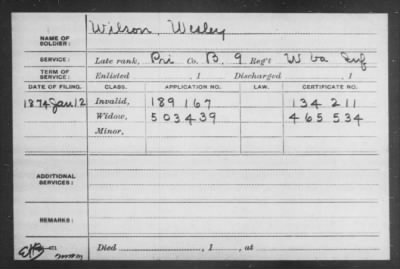 NAME OF SOLDIER: Wilson, Wesley
SERVICE: Late rank, Pri Co. B, 9 Reg't W Va Inf
TERM OF SERVICE: Enlisted , 1 Discharged , 1
DATE OF FILING. CLASS. APPLICATION NO. LAW. CERTIFICATE NO.
1874 Jan 12 Invalid, 189 167 134 211
Widow, 503439 465 534
Minor,
ADDITIONAL SERVICES:
REMARKS:
Died , 1 , at